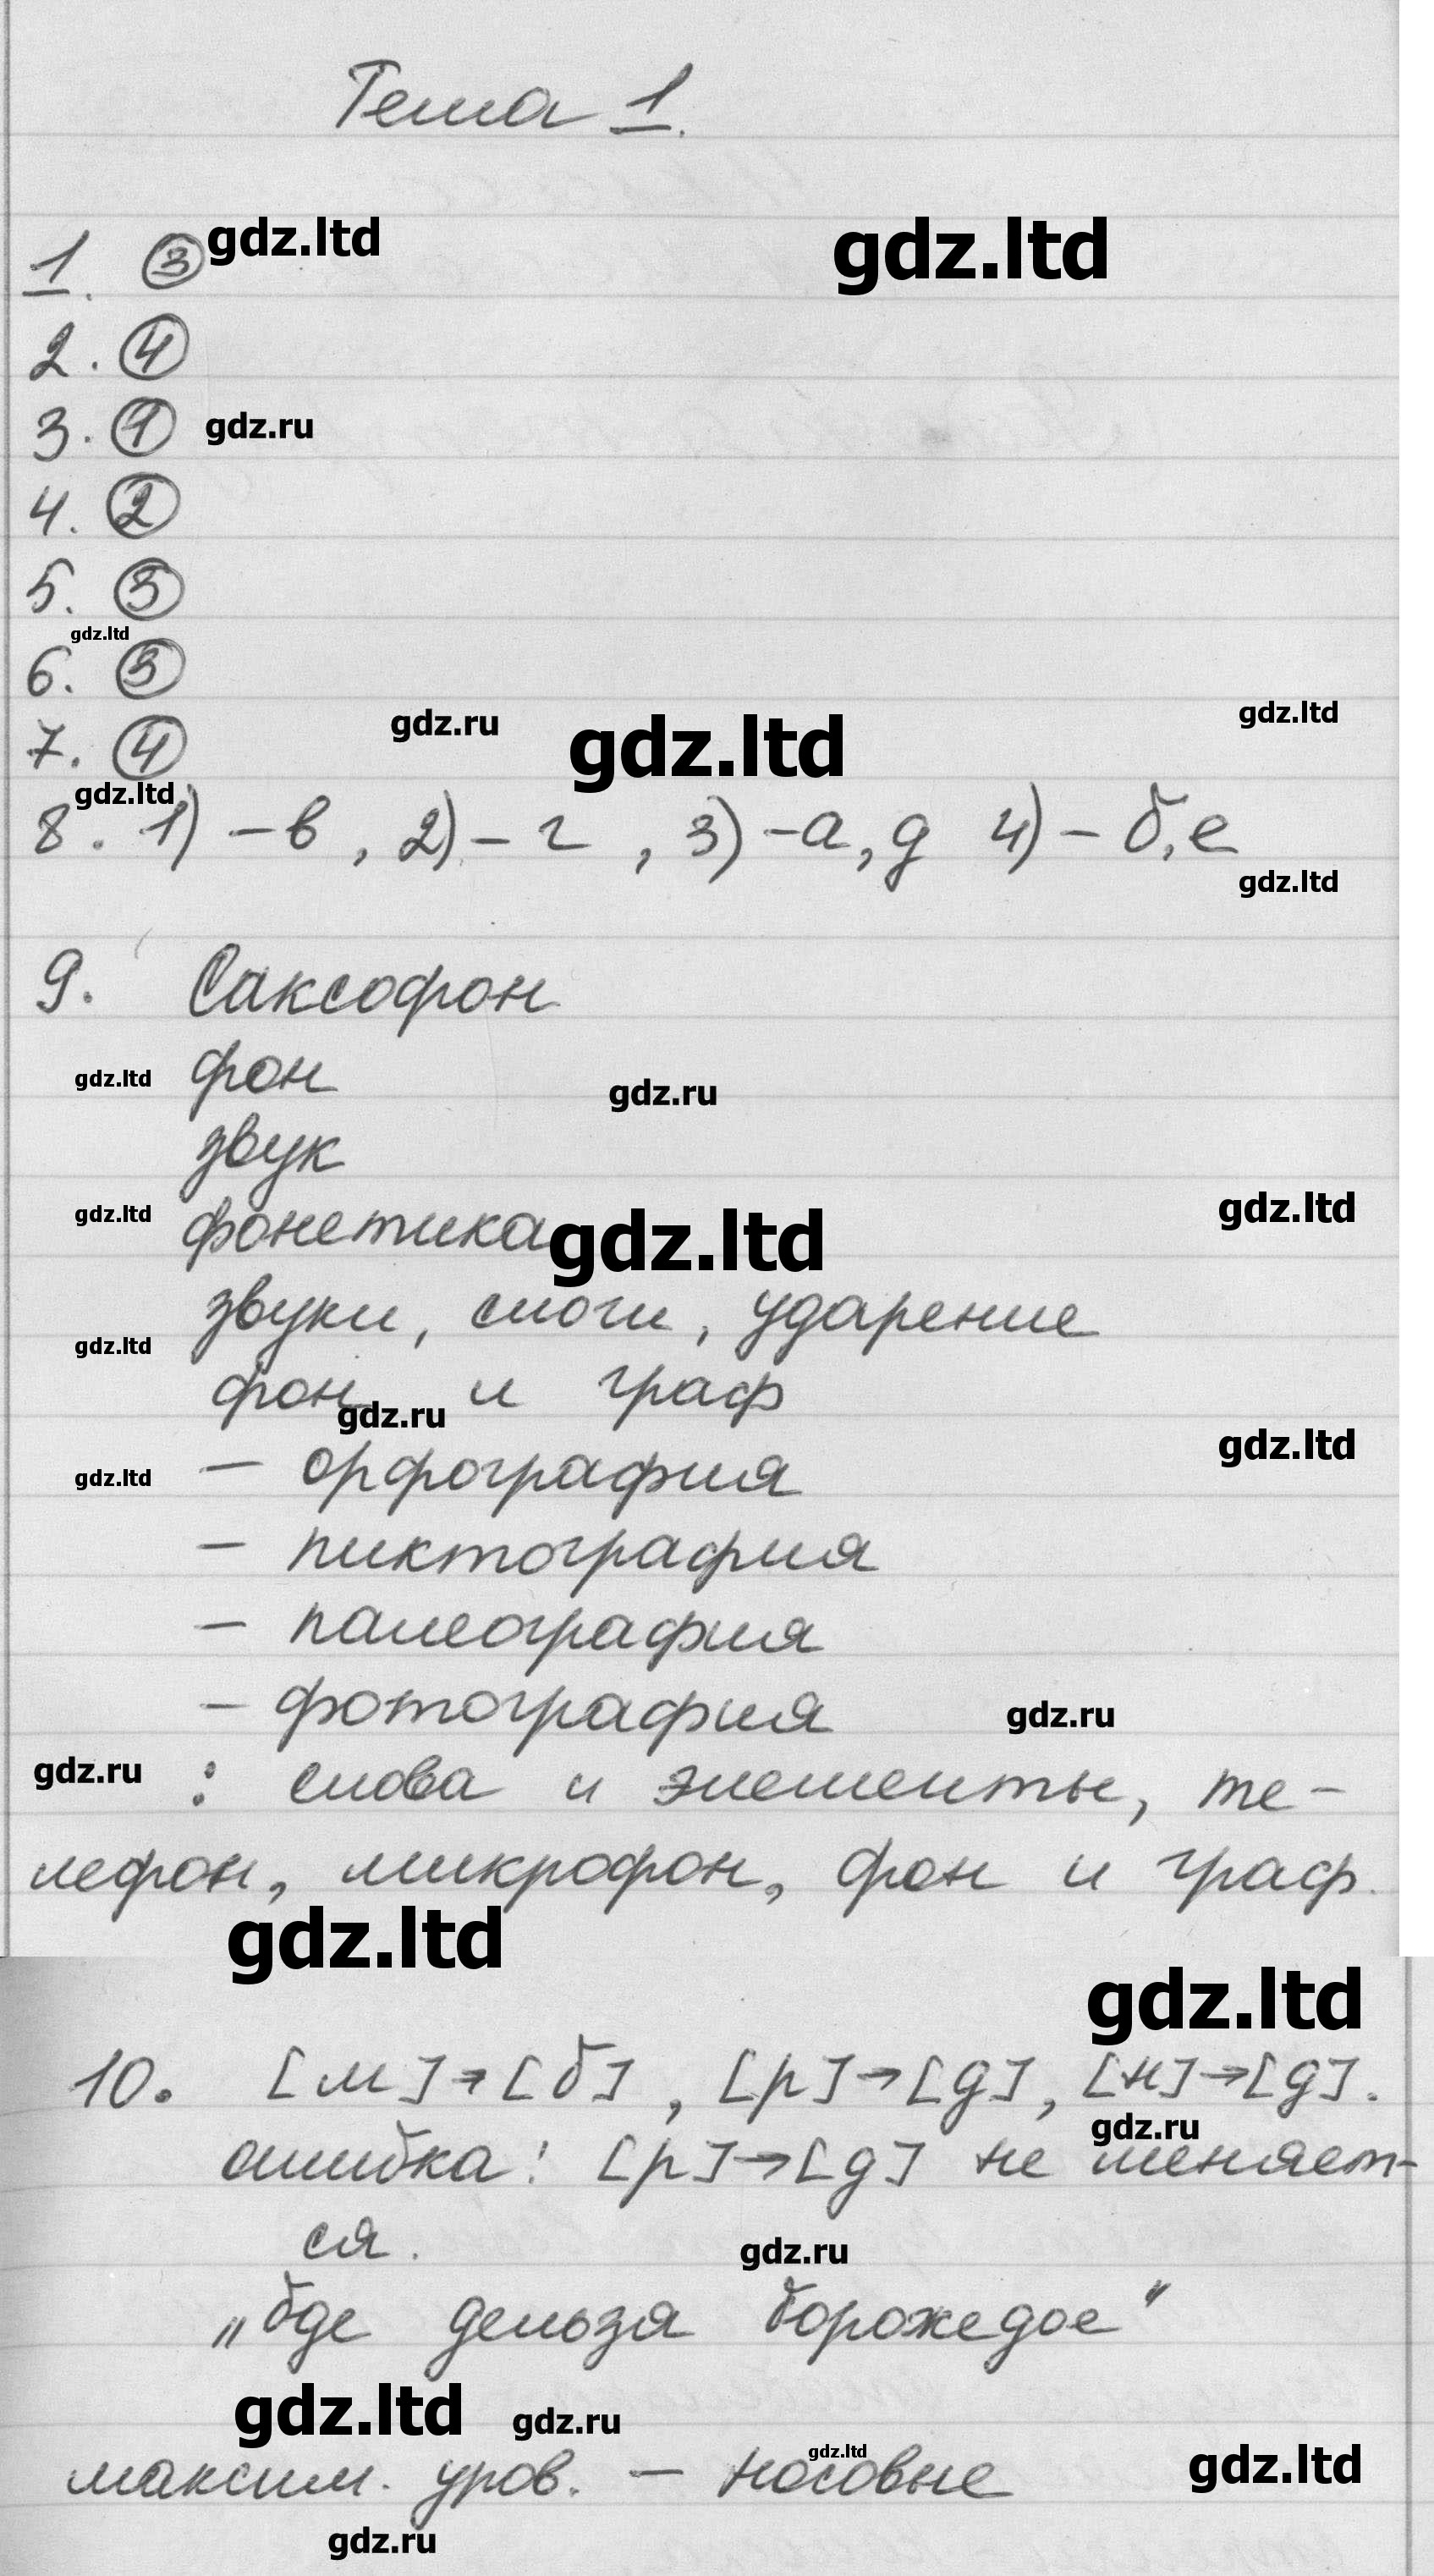 Тема 1.
1. 3 gdz.ltd gdz.ltd
2. 4
3. 1 gdz.ru
4. 2
5. 3
gdz.ltd
6. 3
gdz.ru gdz.ltd gdz.ltd
7. 4
gdz.ltd
8. 1) – в, 2) – г, 3) – а, д 4) – б, е
gdz.ltd
9. Саксофон
gdz.ltd фон gdz.ru
звук
gdz.ltd фонетика gdz.ltd gdz.ltd
звуки, слоги, ударение
gdz.ltd
фон и граф
gdz.ru gdz.ltd
gdz.ltd – орфография
– пиктография
– палеография
– фотография gdz.ru
gdz.ru : слова и элементы, те-
лефон, микрофон, фон и граф.
gdz.ltd gdz.ltd
10. [м]→[б], [р]→[д], [н]→[д].
gdz.ru
ошибка: [р]→[д] не меняет-
ся. gdz.ru
„бде дельзя борожедое“
gdz.ltd gdz.ru
gdz.ltd gdz.ltd
максим. уров. – носовые
gdz.ru